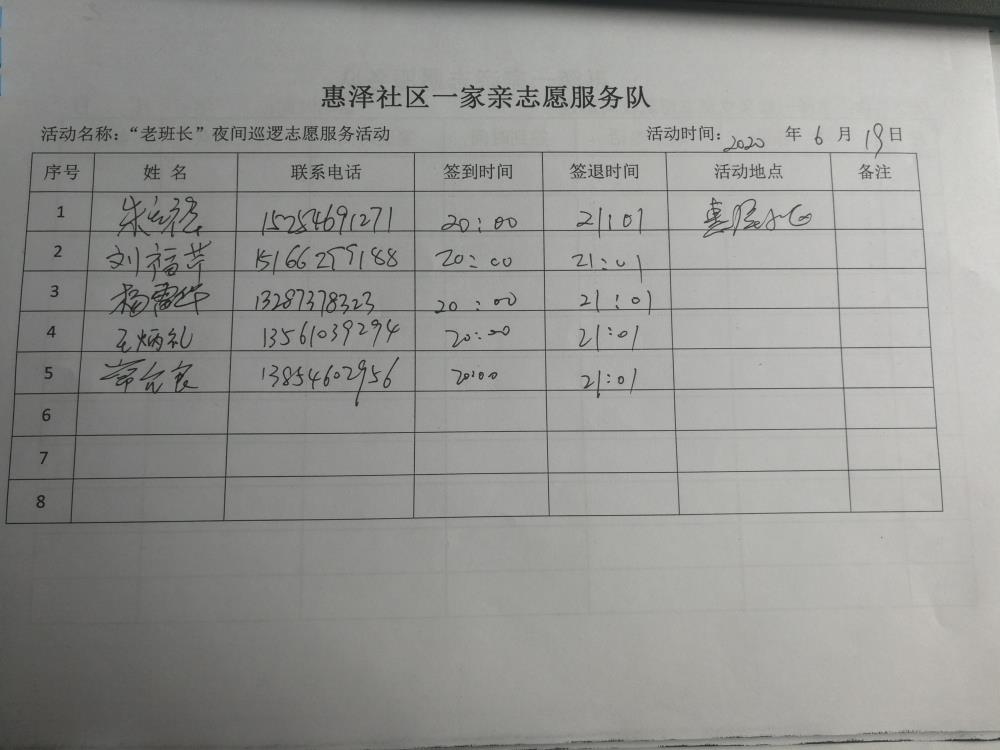 惠泽社区一家亲志愿服务队
活动名称：“老班长”夜间巡逻志愿服务活动 活动时间：2020 年 6 月 19 日
序号 姓 名 联系电话 签到时间 签退时间 活动地点 备注
1 15254691271 20:00 21:01
2 刘福芹 15166299188 20:00 21:01
3 杨雷华 13287378323 20:00 21:01
4 王炳礼 13561039294 20:00 21:01
5 13854602956 20:00 21:01
6
7
8